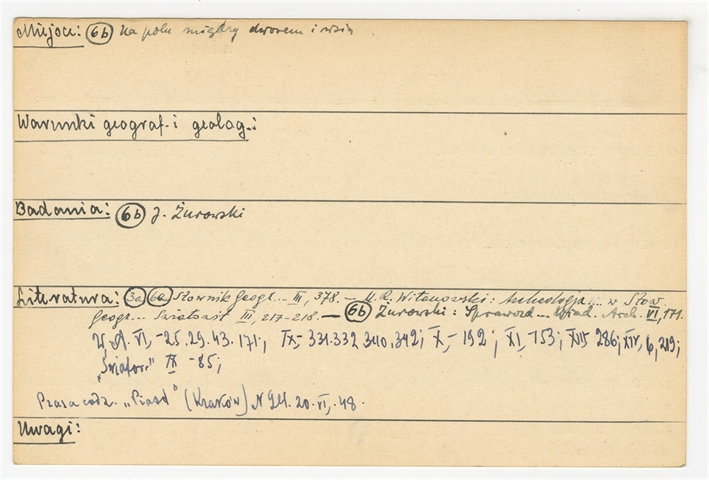 Miejsce: (6b) Na polu między dworem i wsią
Warunki geograf-i geolog-i
Badania: (6b) J. Żurowski
Literatura: (3a) (6a) Słownik Geogr... III, 378 — M.R. Witanowski: Archeologja... w Słow.
geogr... Światowit III, 217-218. — (6b) Żurowski: Sprawozd... Wiad. Arch. VI, 171.
W.A. VI, -25.29.43.171; IX,- 331.332 340.342; X,- 192; XI,-153; XIII 286; XIV, 6, 219;
"Światow." IX -85;
Prasa codz. "Piast" (Kraków) N 24. 20.VI.-48.
Uwagi: